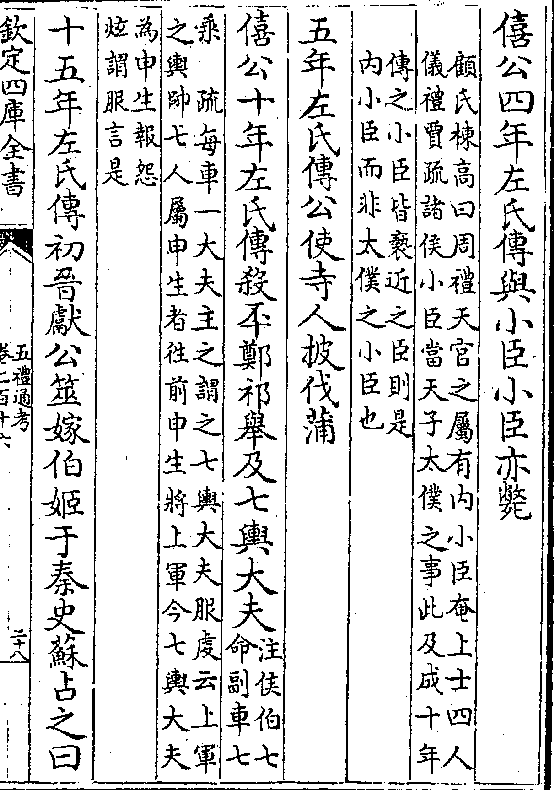 僖公四年左氏傳與小臣小臣亦斃
顧氏棟高曰周禮天官之屬有内小臣奄上士四人
儀禮賈疏諸侯小臣當天子太僕之事此及成十年
傳之小臣皆褻近之臣則是
内小臣而非太僕之小臣也
五年左氏傳公使寺人披伐蒲
僖公十年左氏傳殺丕鄭祁舉及七輿大夫
注侯伯七
命副車七
乘　疏每車一大夫主之謂之七輿大夫服虔云上軍
之輿帥七人屬申生者往前申生將上軍今七輿大夫
為申生報怨
炫謂服言是
十五年左氏傳初晉獻公筮嫁伯姬于秦史蘇占之曰
欽定四庫全書
五禮通考
卷二百十六
二十八